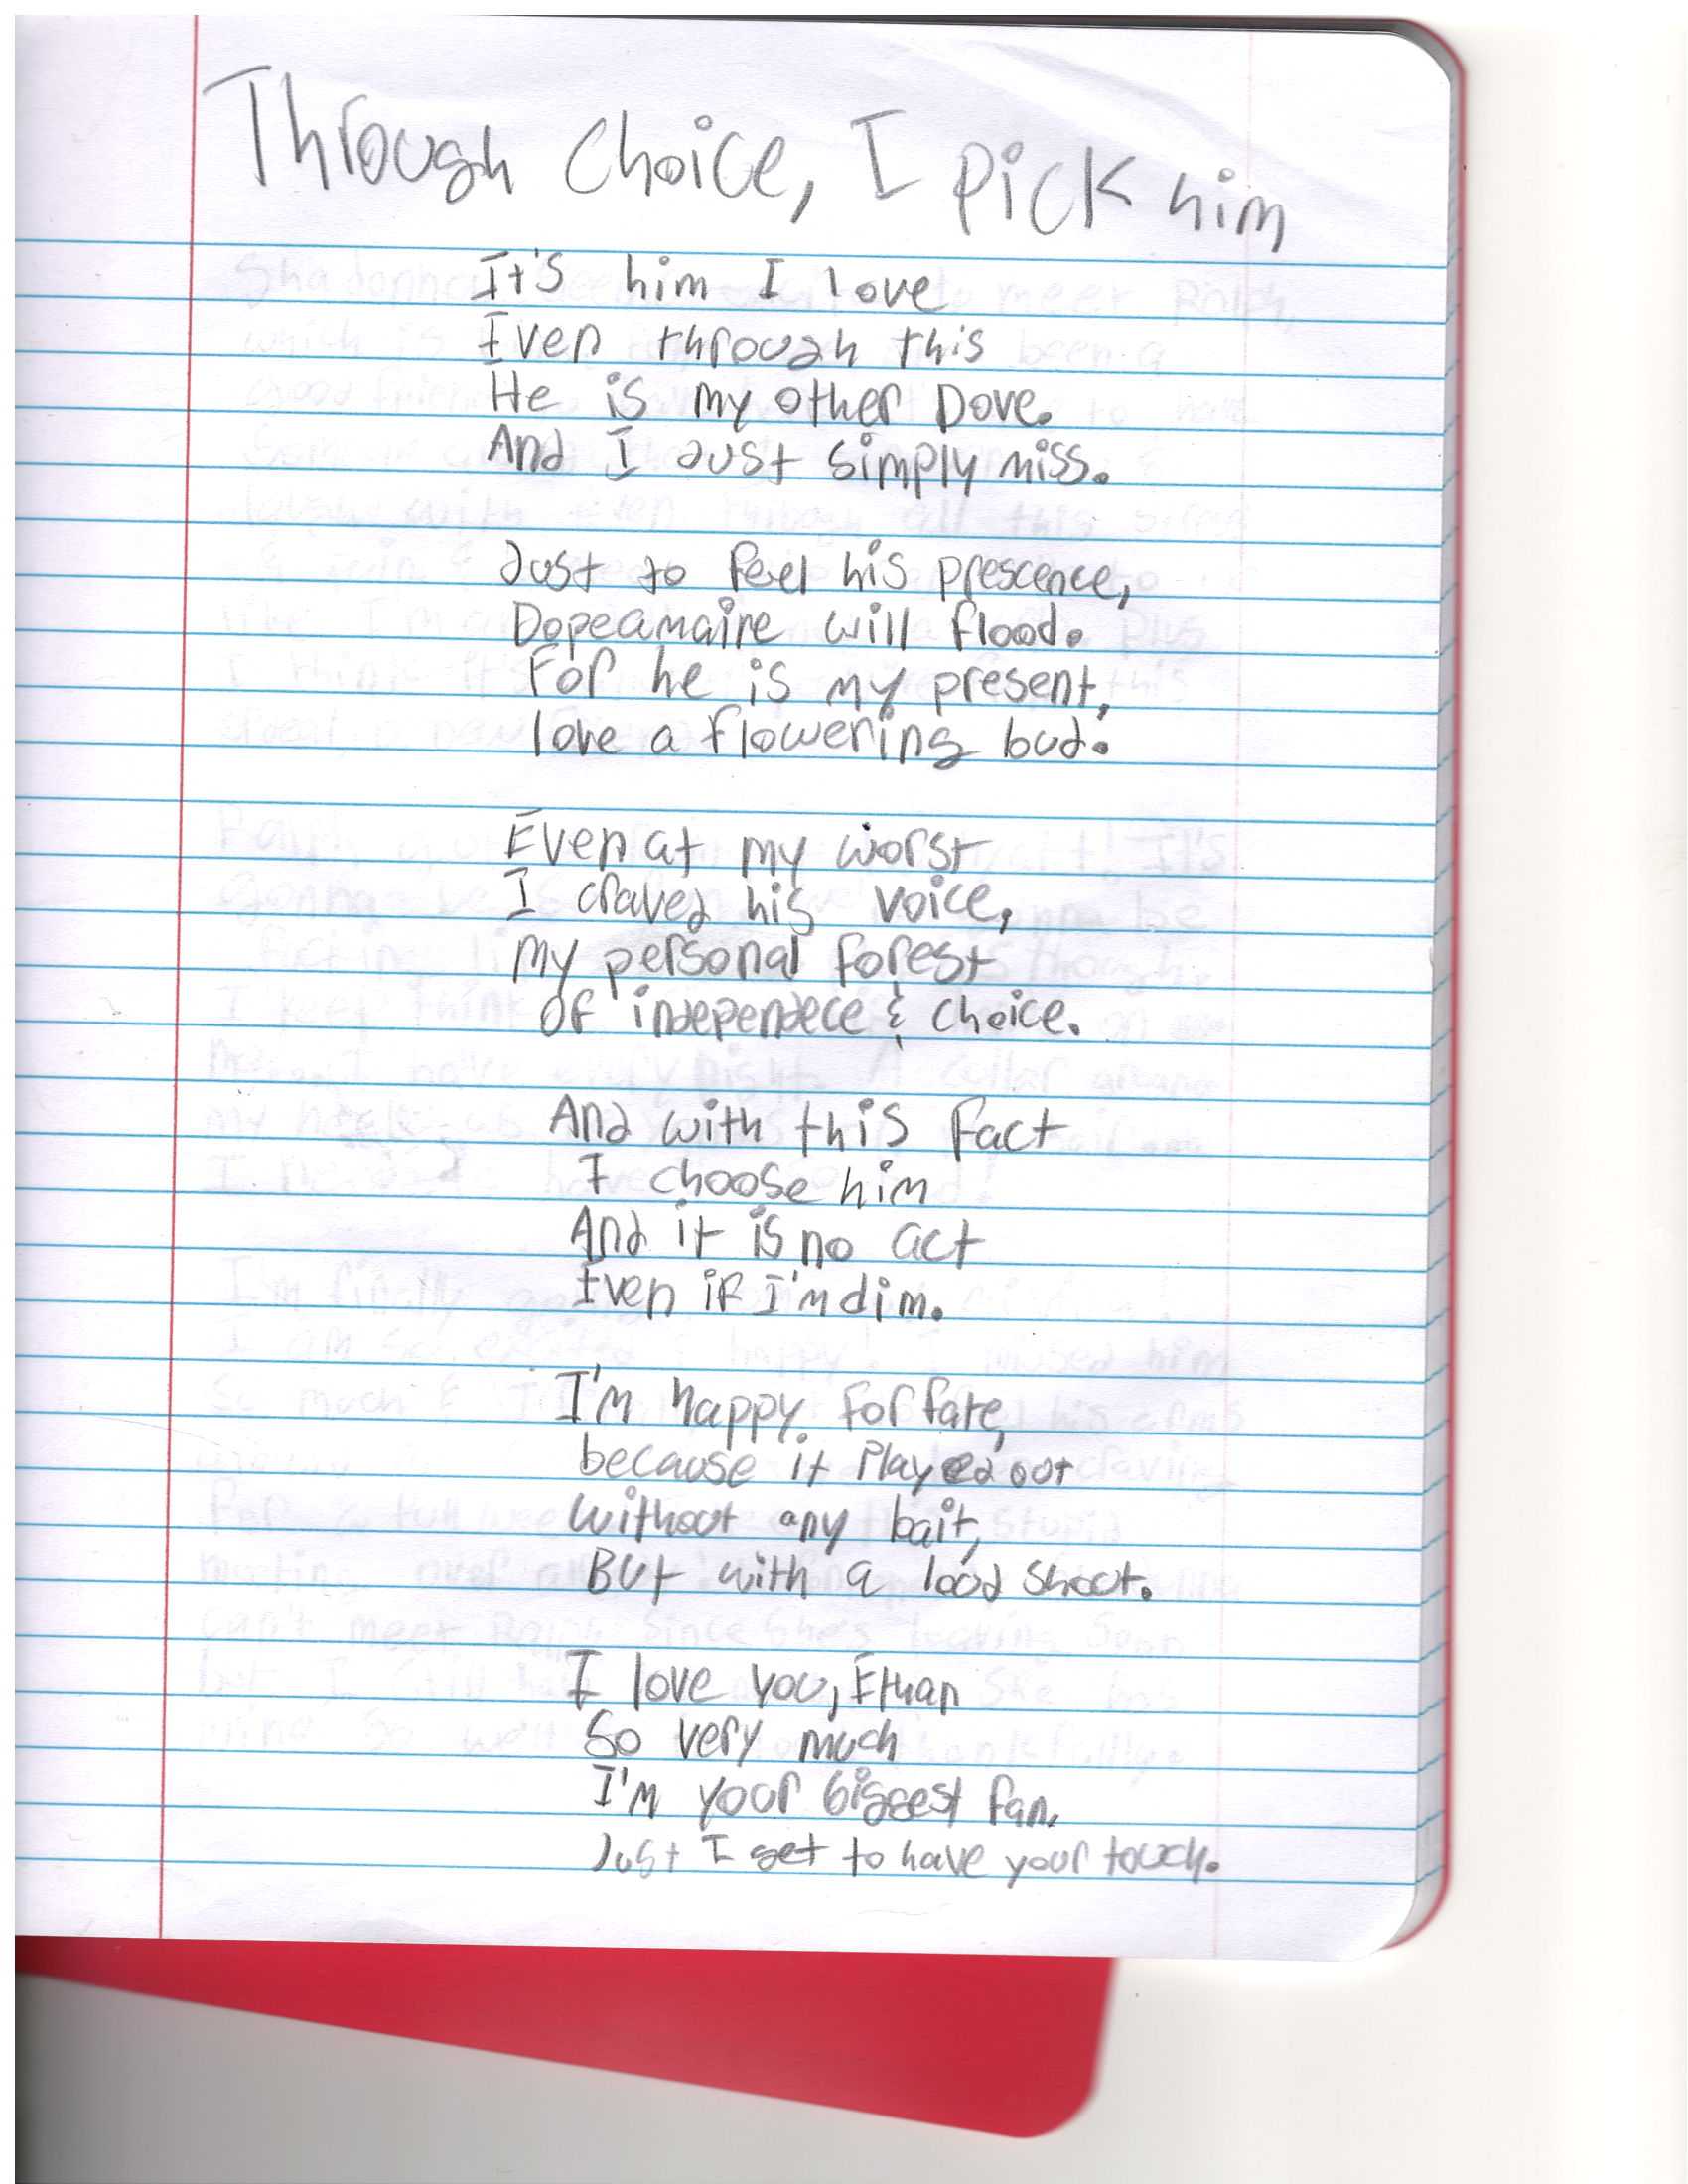 Through Choice, I pick him
It's him I love
Even through this
He is my other Dove.
And I Just simply miss.
Just to feel his prescence,
Dopeamaire will flood.
For he is my present,
love a flowering bud.
Even at my worst
I craved his voice,
my personal forest
of independece & choice.
And with this fact
I choose him
And it is no act
Even if I'm dim.
I'm happy for fate,
because it played out
without any bait,
But with a loud shout.
I love you, Ethan
So very much
I'm your biggest fan,
Just I get to have your touch.